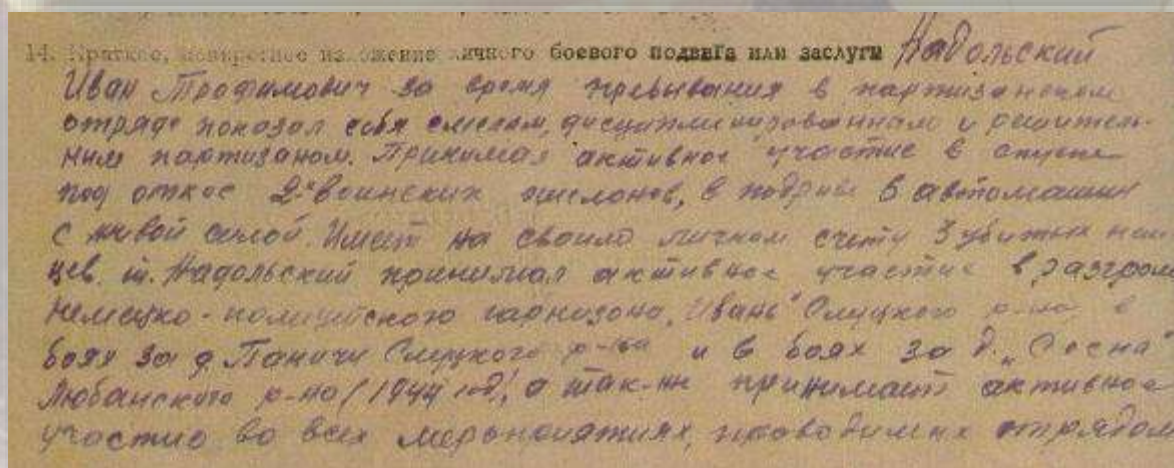 14. Краткое, конкретное изложение личного боевого подвига или заслуги Надольский
Иван Трофимович за время пребывания в партизанском
отряде показал себя смелым, дисциплинированным и решитель-
ным партизаном. Принимал активное участие в спуске
под откос 2х воинских эшелонов, в подрыве 5 автомашин
с живой силой. Имеет на своило личном счету 3 убитых нем-
цев. т. Надольский принимал активное участие в разгроме
немецко-полицейского гарнизона, "Ивань" Слуцкого р-на в
боях за д. Паничи Слуцкого р-на и в боях за д. "Сосна"
Любанского р-на (1944 год), а так-же принимает активное
участие во всех мероприятиях, проводимых отрядом